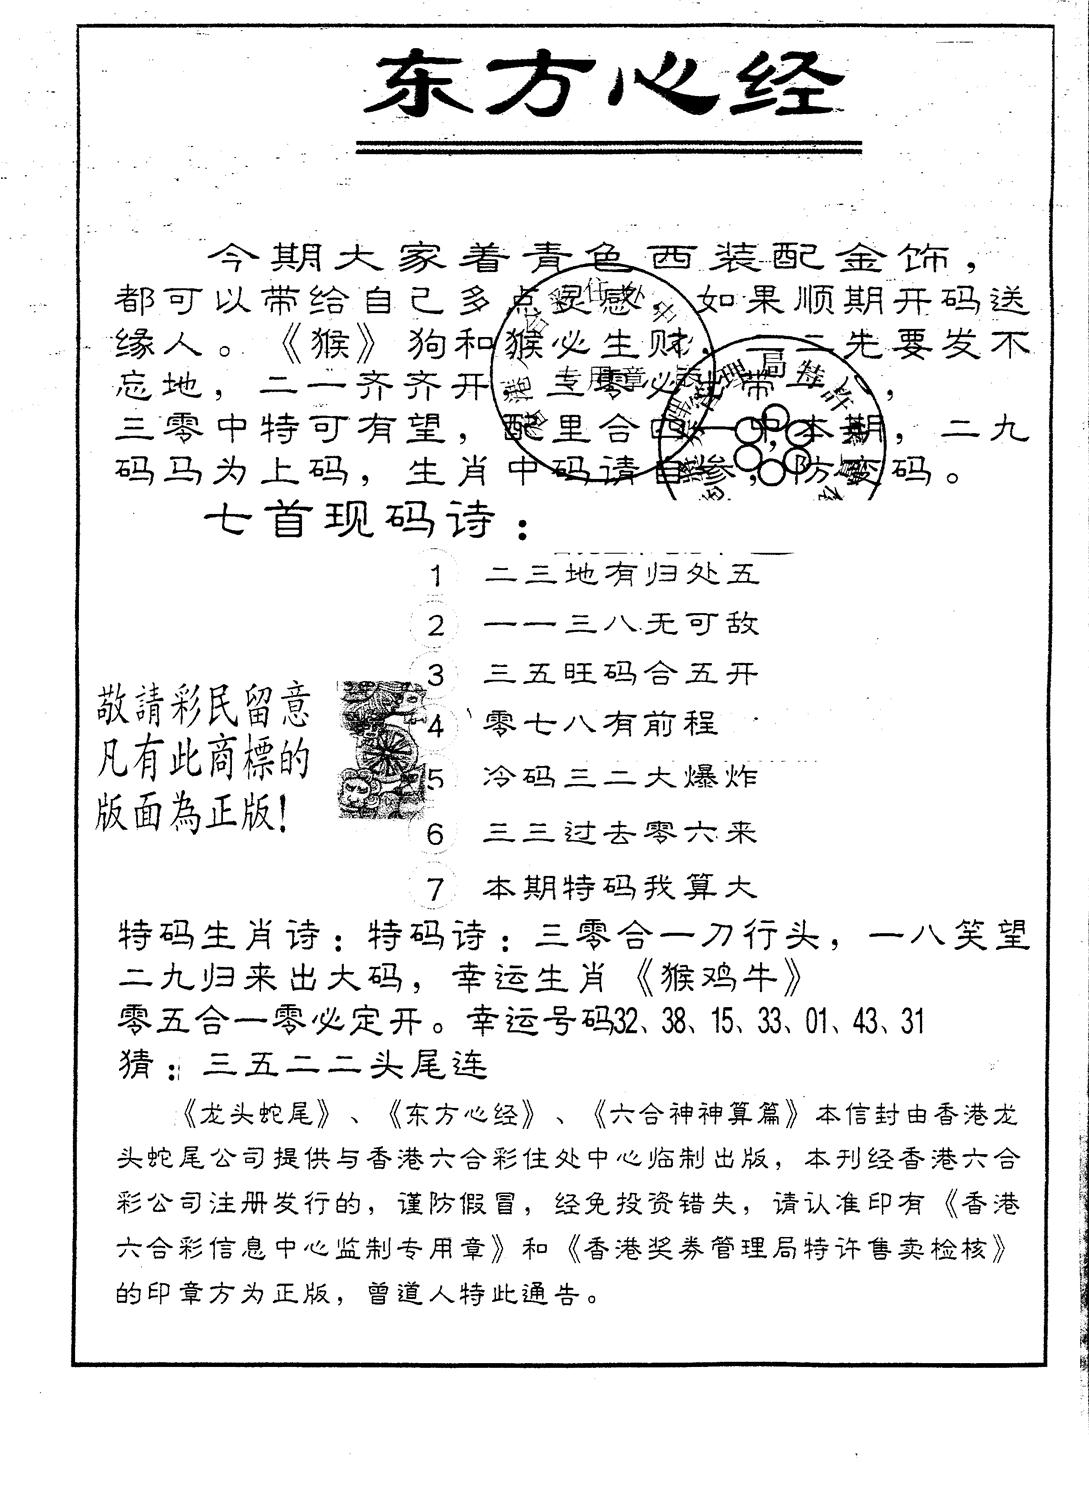 东方心经
今期大家着青色西装配金饰，
都可以带给自己多点灵感，如果顺期开码送
缘人。《猴》狗和猴必生财，一二先要发不
忘地，二一齐齐开，三零必出带
三零中特可有望，配里合四一中本期，二九
码马为上码，生肖中码请自参，防变码。
七首现码诗：
1 二三地有归处五
2 一一三八无可敌
3 三五旺码合五开
4 零七八有前程
5 冷码三二大爆炸
6 三三过去零六来
7 本期特码我算大
敬請彩民留意
凡有此商標的
版面為正版!
特码生肖诗：特码诗：三零合一刀行头，一八笑望
二九归来出大码，幸运生肖《猴鸡牛》
零五合一零必定开。幸运号码32、38、15、33、01、43、31
猜：三五二二头尾连
《龙头蛇尾》、《东方心经》、《六合神神算篇》本信封由香港龙
头蛇尾公司提供与香港六合彩住处中心临制出版，本刊经香港六合
彩公司注册发行的，谨防假冒，经免投资错失，请认准印有《香港
六合彩信息中心监制专用章》和《香港奖券管理局特许售卖检核》
的印章方为正版，曾道人特此通告。
专用章